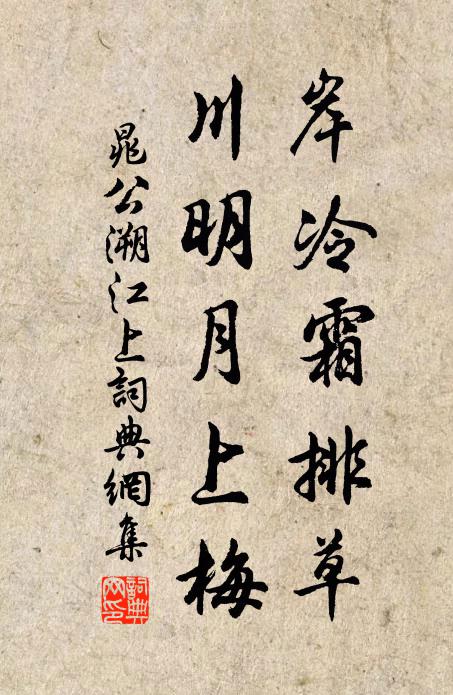 岸冷霜排草
川明月上梅
晁公溯江上詞典網集
詞典網印